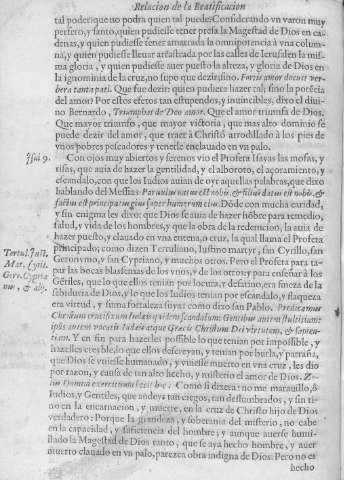 Relacion de la Beatificacion
tal poder: que no podra quien tal puede? Considerando vn varon muy
perfeto, y santo, quien pudiesse tener presa la Magestad de Dios en ca-
denas, y quien pudiesse tener amarrada la omnipotencia à vna colunna,
y quien pudiesse lleuar arrastrada por las calles de Ierusalen la mis-
ma gloria, y quien pudiesse auer puesto la alteza, y gloria de Dios en
la ignominia de la cruz, no supo que dezir, sino. Fortis amor docuit ver-
bera tanta pati. Que fue dezir: quien pudiera hazer tal, sino la potécia
del amor? Por estos efetos tan estupendos, y inuincibles, dixo el diui-
no Bernardo, Triumphat de Deo amor. Que el amor triumfa de Dios.
Que mayor triumfo, que mayor victoria, que mas alto dominio se
puede dezir del amor, que traer à Christo arrodillado à los pies de
vnos pobres pescadores y tenerle enclauado en vn palo.
Isai 9.
Con ojos muy abiertos y serenos vio el Profeta Isayas las mofas, y
risas, que auia de hazer la gentilidad, y el alboroto, el açoramiento, y
escandalo, con que los Iudios auian de oyr aquellas palabras, que dixo
hablando del Messias Paruulus natus est nobis, & filius datus est nobis, &
factus est principatus eius super humerum eius. Dóde con mucha caridad,
y sin enigma les dixo: que Dios se auia de hazer hóbre para remedio,
salud, y vida de los hombres, y que la obra de la redencion, la auia de
hazer puesto, y clauado en vna entena, o cruz, la qual llama el Profeta
Tertul. Iust.
Mar. Cyril.
Ger. Cypria
nus, & alij.
principado, como dizen Tertuliano, Iustino martyr, san Cyrillo, san
Geronymo, y san Cypriano, y muchos otros. Pero el Profeta para ta-
par las bocas blasfemas de los vnos, y de los otros: y para enseñar à los
Gétiles, que lo que ellos tenian por locura, y desatino, era fineza de la
sabiduria de Dios, y lo que los Iudios tenian por escandalo, y flaqueza
era virtud, y suma fortaleza suya: como dixo san Pablo. Prædicamus
Christum crucifixum Iudæis quidem scandalum: Gentibus autem stultitiam:
ipsis autem vocatis Iudæis atque Græcis Christum Dei virtutem, & sapien-
tiam. Y en fin para hazerles possible lo que tenian por impossible, y
hazelles creible, lo que ellos descreyan, y tenian por burla, y patraña,
que Dios se vuiesse humanado, y vuiesse muerto en vna cruz, les dio
por razon, y causa de tan alto hecho, y misterio el amor de Dios. Ze-
lus Domini exercituum fecit hoc. Como si dixera: no me marauillo, ò
Iudios, y Gentiles, que andeys tan ciegos, tan deslumbrados, y sin ti-
no en la encarnacion, y muerte, en la cruz de Christo hijo de Dios
verdadero: Porque la grandeza, y soberania del misterio, no cabe
en la capacidad, y suficiencia del hombre; y aunque auerse humi-
llado la Magestad de Dios tanto, que se aya hecho hombre, y auer
muerto clauado en vn palo, parezca obra indigna de Dios: Pero no es
hecho